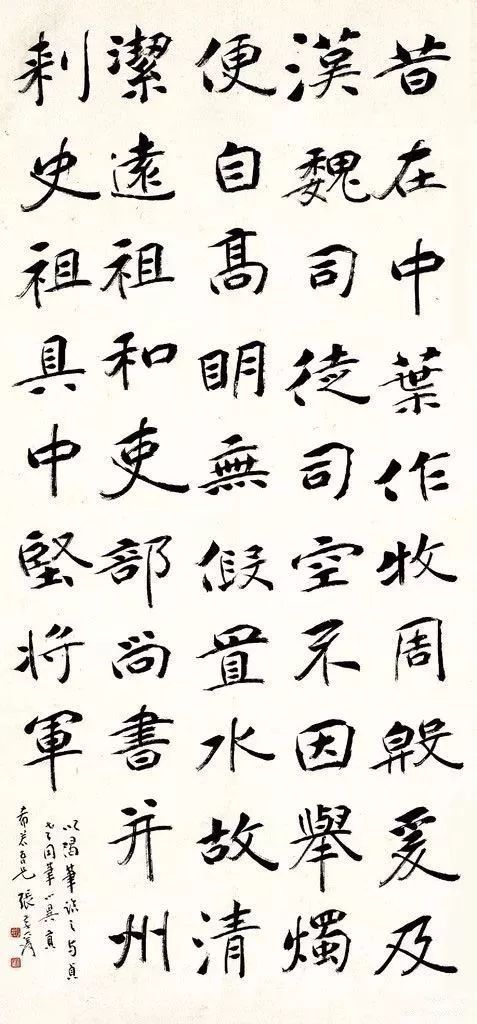 昔在中葉作牧周殷爰及
漢魏司徒司空不因舉燭
便自高明無假置水故清
潔遠祖和吏部尚書并州
刺史祖具中堅將軍
以渴筆臨之与
同筆
張